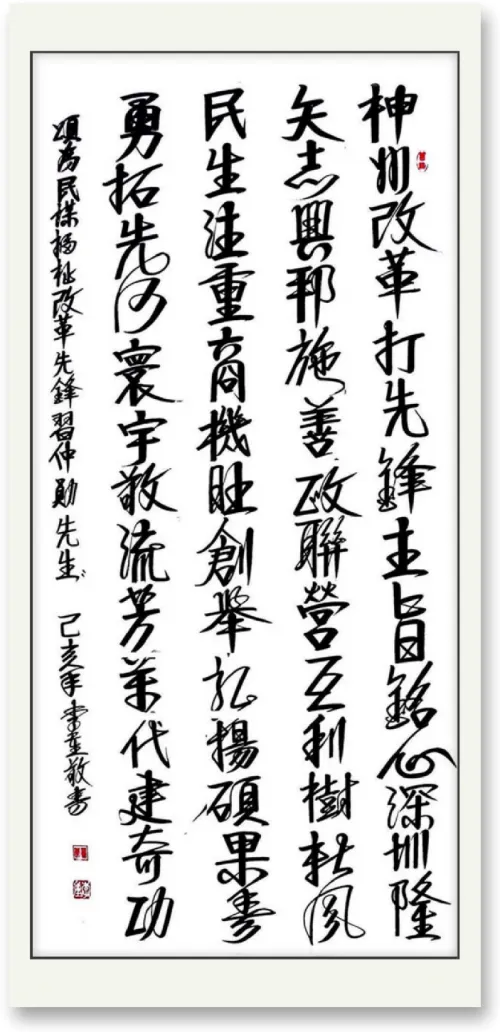 神州改革打先鋒主旨銘心深圳隆
矢志興邦施善政聯營互利樹風
民生注重商機旺創舉弘揚碩果
勇拓先河寰宇敬流芳萬代建奇功
頌為民謀福祉改革先鋒習仲勛先生 己亥年敬書